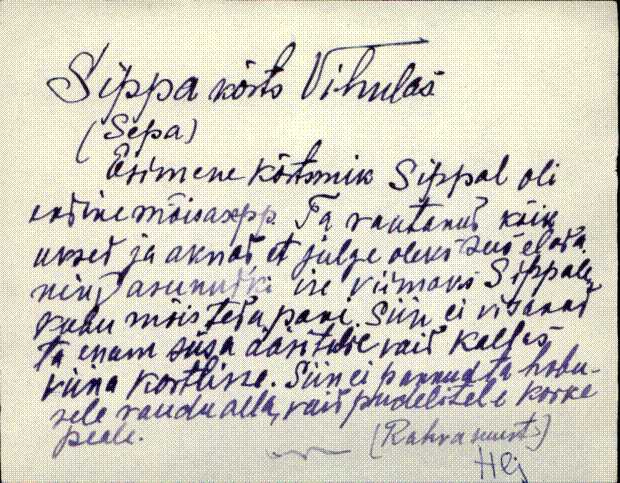 Sippa kõrts Vihulas
(Sepa)
Esimene kõrtsmik Sippal oli
endine mõisasepp. Ta rautanud kõik
uksed ja aknad et julge oleks sees elada.
ning asunudki ise viimaks Sippale,
kuhu mõis teda pani. Siin ei visanud
ta enam süsa ääsitulle vaid kallas
viina kortlisse. Siin ei pannud ta hobu-
sele raudu alla, vaid pudelitele korke
peale.
(Rahva suust)